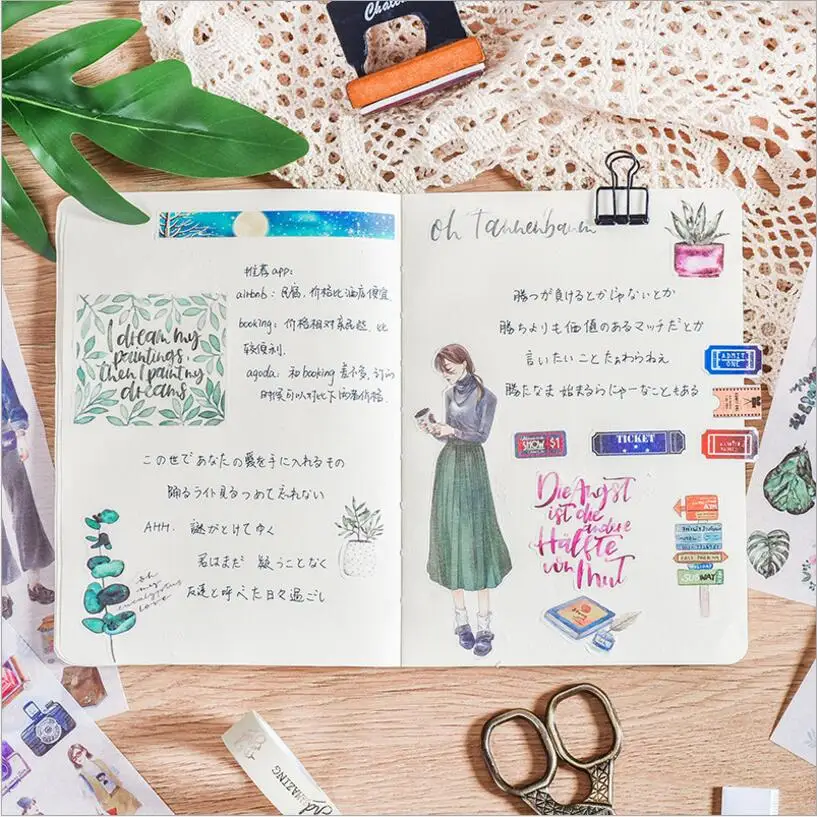 Chalo
oh Tannenbaum
推荐app:
airbnb: 民宿, 价格比酒店便宜
booking: 价格相对亲民些, 比
较便利.
agoda: 和booking差不多, 订的
时候可以对比下两者价格.
I dream my
paintings,
then I paint my
dreams
この世であなたの愛を手に入れるもの
踊るライト見るつめて忘れない
AHH. 謎がとけてゆく
君はまだ 疑うことなく
友達と呼べた日々過ごし
oh
my
eucalyptus
love
勝つが負けるとかじゃないとか
勝ちよりも価値のあるマッチだとか
言いたいことたぁわらねえ
勝たなま始まるらにゃーなこともある
ADMIT
ONE
SHOW $1
TICKET
Die Angst
ist die
andere
Hälfte
von Mut
SUBWAY
AMAZING